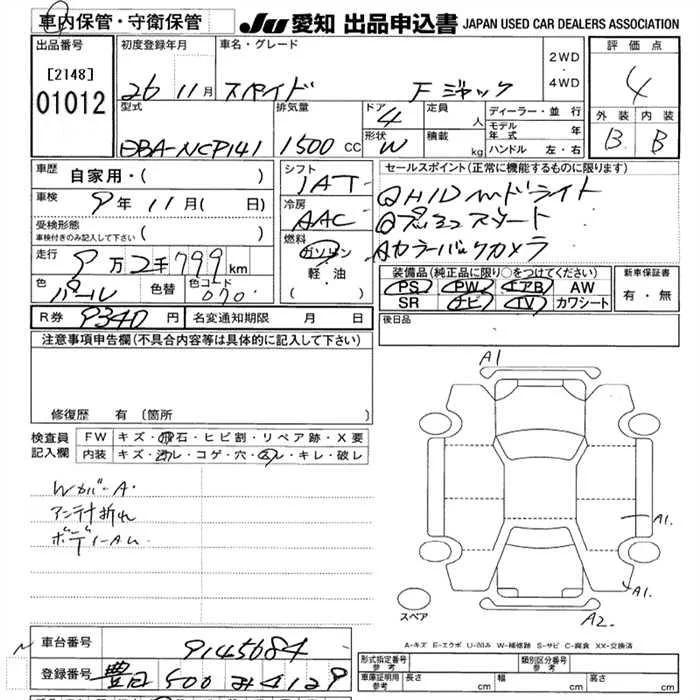 車内保管・守衛保管
JU 愛知 出品申込書 JAPAN USED CAR DEALERS ASSOCIATION
出品番号
[2148]
01012
初度登録年月
26 11月
車名・グレード
スペイド Fジャック
2WD
・
4WD
評価点
4
型式
DBA-NCP141
排気量
1500 CC
ドア
4
形状
W
定員
人
積載
kg
ディーラー・並行
モデル年式 年
ハンドル 左・右
外装 内装
B B
車歴
自家用・( )
シフト
IAT
セールスポイント(正常に機能するものに限ります)
①HIDヘッドライト
②プッシュスタート
③カラーバックカメラ
車検
9年11月( 日)
冷房
AAC
受検形態
車検付きのみ記入して下さい ( )
燃料
ガソリン
軽油
( )
走行
9万 799 km
色
パール
色替
色コード
070
装備品(純正品に限り○をつけてください)
PS PW エアB AW
SR ナビ TV カワシート
新車保証書
有・無
R券 9340円
名変通知期限 月 日
後日品
注意事項申告欄(不具合内容等は具体的に記入して下さい)
修復歴 有〔箇所
検査員
記入欄
FW キズ・飛石・ヒビ割・リペア跡・X要
内装 キズ・汚レ・コゲ・穴・スレ・キレ・破レ
WカバーA.
アンテナ折れ
ボディーAU
A1
A1.
A1.
A2.
スペア
A-キズ E-エクボ U-凹み W-補修跡 S-サビ C-腐食 XX-交換済
車台番号 9145684
登録番号 豊田 500 み 4129
形式指定番号
参考
類別区分番号
参考
車庫証明用
参考
長さ cm
幅 cm
高さ cm